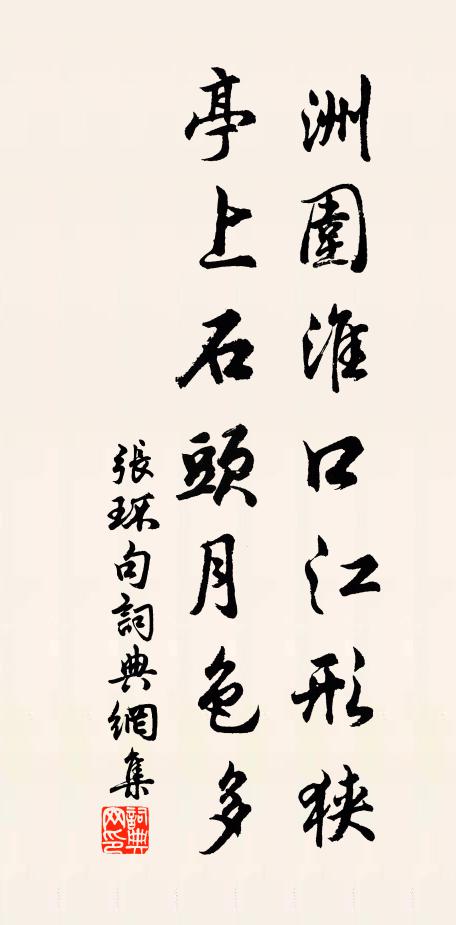 洲圍淮口江形狹
亭上石頭月色多
張琛句詞典網集
詞典網印